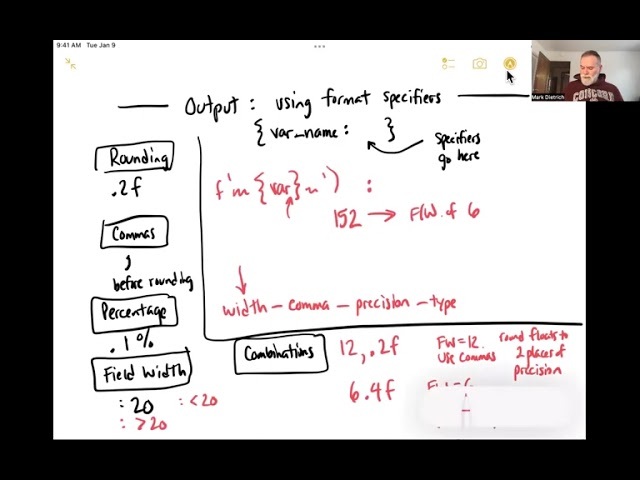 9:41 AM Tue Jan 9
Mark Dietrich
Output: using format specifiers
{ var_name: }
Specifiers
go here
Rounding
.2f
Commas
before rounding
Percentage
.1%
Field Width
: 20 : < 20
: > 20
f'm {var} m') :
152 → F/W. of 6
width - comma - precision - type
Combinations
12,.2f
FW=12.
Use Commas
round floats to
2 places of
precision
6.4f